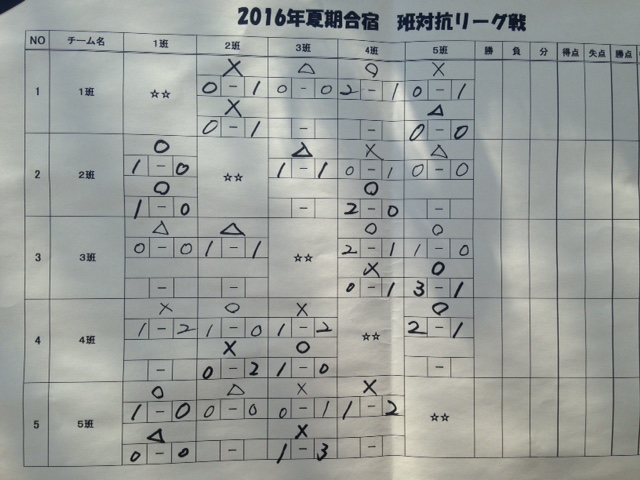 2016年夏期合宿 班対抗リーグ戦
NO チーム名 1班 2班 3班 4班 5班 勝 負 分 得点 失点 勝点
× △ ○ ×
0-1 0-0 2-1 0-1
1 1班 ☆☆
× △
0-1 - - 0-0
○ △ × △
1-0 1-1 0-1 0-0
2 2班 ☆☆
○ ○
1-0 - 2-0 -
△ △ ○ ○
0-0 1-1 2-1 1-0
3 3班 ☆☆
× ○
- - 0-1 3-1
× ○ × ○
1-2 1-0 1-2 2-1
4 4班 ☆☆
× ○
- 0-2 1-0 -
○ △ × ×
1-0 0-0 0-1 1-2
5 5班 ☆☆
△ ×
0-0 - 1-3 -